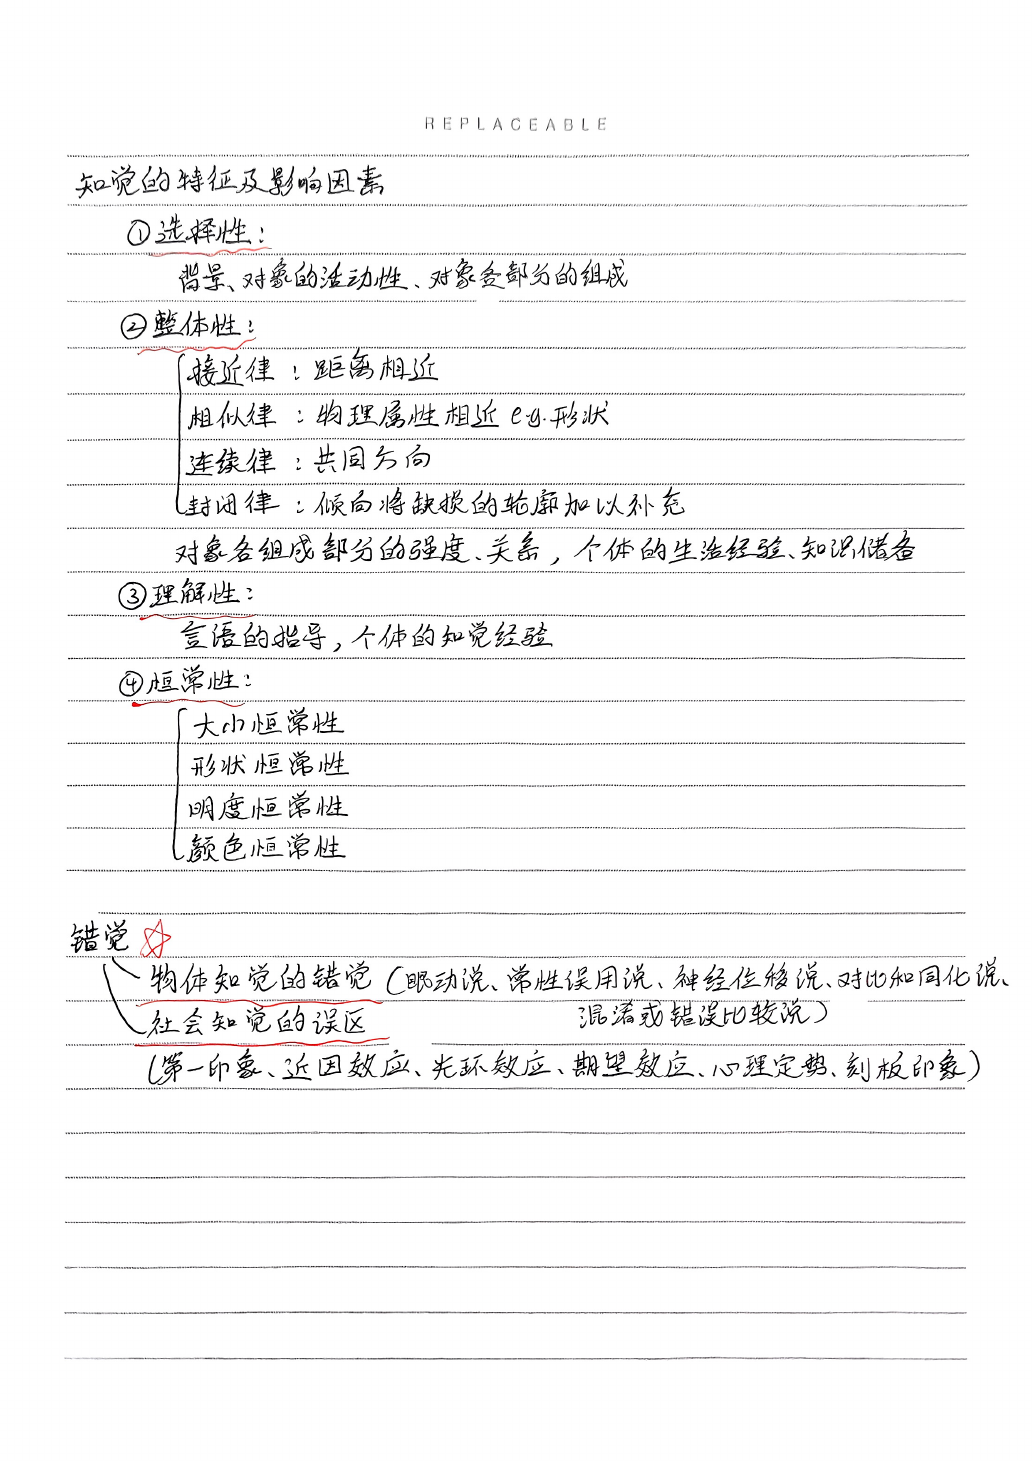 REPLACEABLE
知觉的特征及影响因素
①选择性：
背景、对象的活动性、对象各部分的组成
②整体性：
接近律：距离相近
相似律：物理属性相近 eg.形状
连续律：共同方向
封闭律：倾向将缺损的轮廓加以补充
对象各组成部分的强度、关系，个体的生活经验、知识储备
③理解性：
言语的指导，个体的知觉经验
④恒常性：
大小恒常性
形状恒常性
明度恒常性
颜色恒常性
错觉
物体知觉的错觉（眼动说、常性误用说、神经位移说、对比和同化说、
混淆或错误比较说）
社会知觉的误区
（第一印象、近因效应、光环效应、期望效应、心理定势、刻板印象）